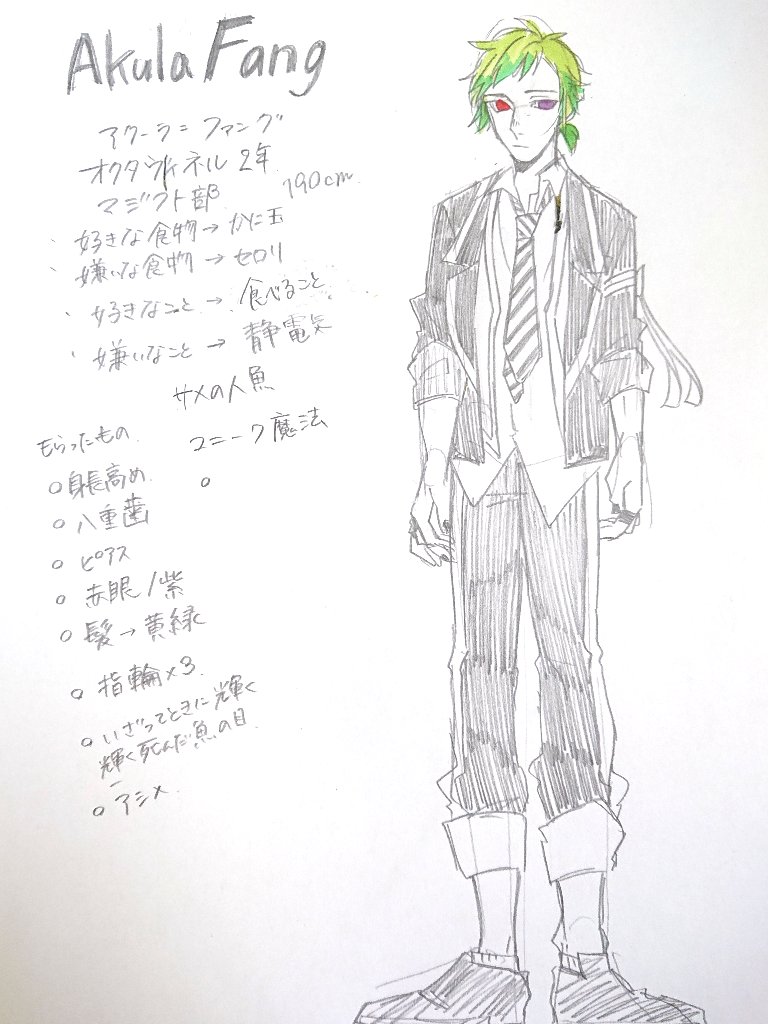 Akula Fang
アクーラ=ファング
オクタヴィネル 2年
マジフト部
190cm
・好きな食物→かに玉
・嫌いな食物→セロリ
・好きなこと→食べること
・嫌いなこと→静電気
サメの人魚
もらったもの
ユニーク魔法
○身長高め
○八重歯
○ピアス
○赤眼/紫
○髪→黄緑
○指輪×3
○いざってときに輝く
輝く死んだ魚の目
○アシメ
○